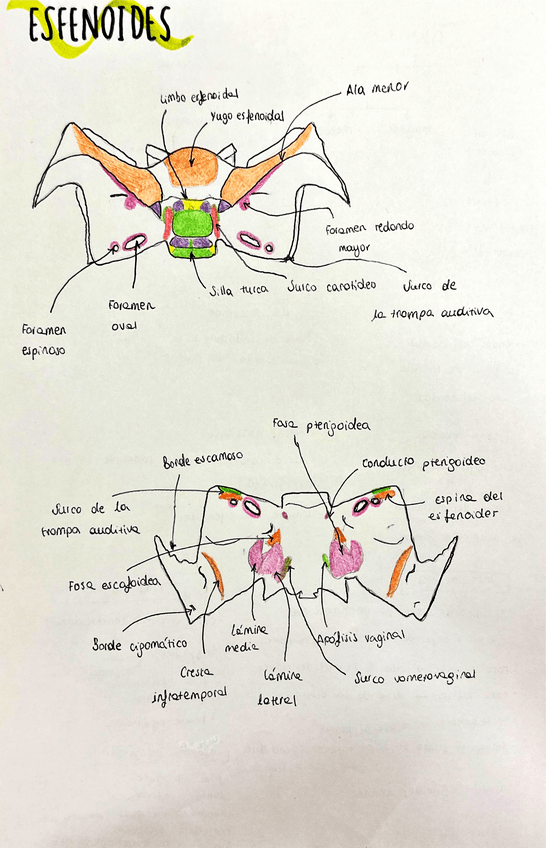 ESFENOIDES
Limbo esfenoidal
Yugo esfenoidal
Ala menor
Foramen redondo
mayor
Silla turca
Surco carotídeo
Surco de
la trompa auditiva
Foramen
oval
Foramen
espinoso
Fosa pterigoidea
Borde escamoso
Conducto pterigoideo
Surco de la
trompa auditiva
espina del
esfenoides
Fosa escafoidea
Borde cigomático
Lámina
media
Apófisis vaginal
Cresta
infratemporal
Lámina
lateral
Surco vomerovaginal